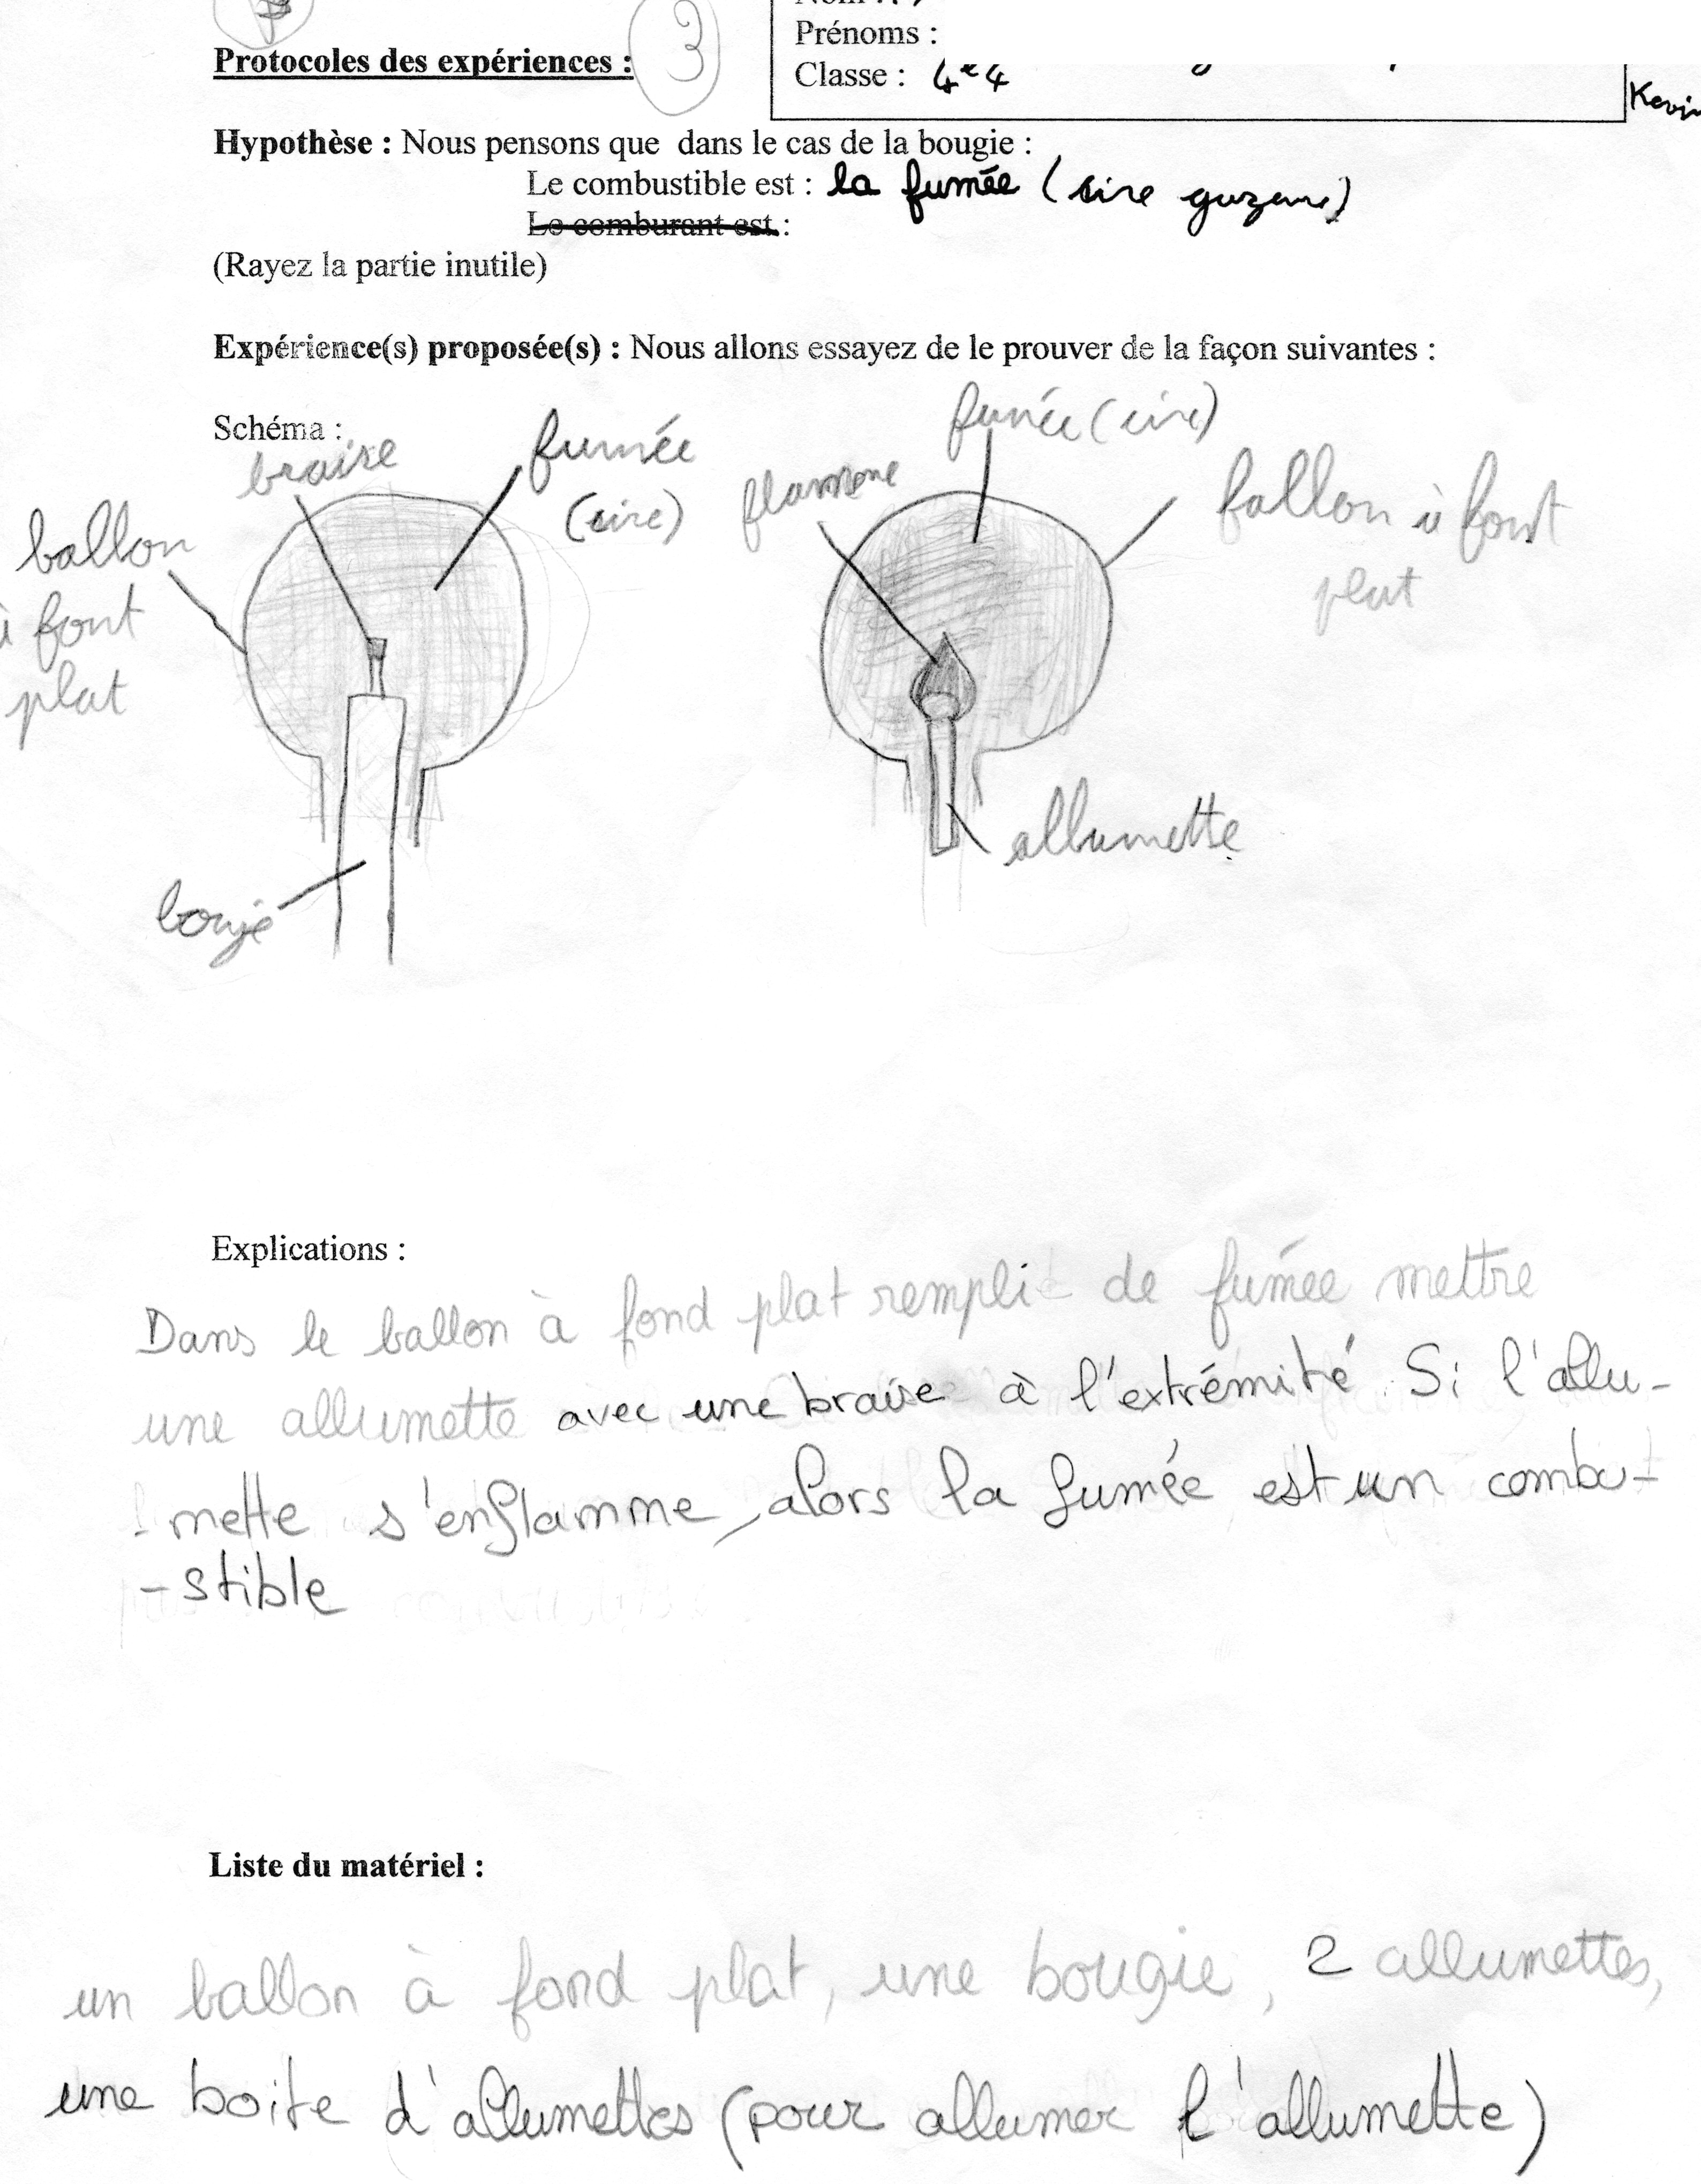 3
Protocoles des expériences :
Prénoms :
Classe : 4e4
Kevin
Hypothèse : Nous pensons que dans le cas de la bougie :
Le combustible est : la fumée (cire gazeuse)
Le comburant est :
(Rayez la partie inutile)
Expérience(s) proposée(s) : Nous allons essayez de le prouver de la façon suivantes :
Schéma :
braise
fumée
(cire)
ballon
à font
plat
bouje
flamme
fumée (cire)
ballon à font
plat
allumette
Explications :
Dans le ballon à fond plat rempli de fumée mettre
une allumette avec une braise à l'extrémité. Si l'allu-
-mette s'enflamme, alors la fumée est un combu-
-stible
Liste du matériel :
un ballon à fond plat, une bougie, 2 allumettes,
une boite d'allumettes (pour allumer l'allumette)